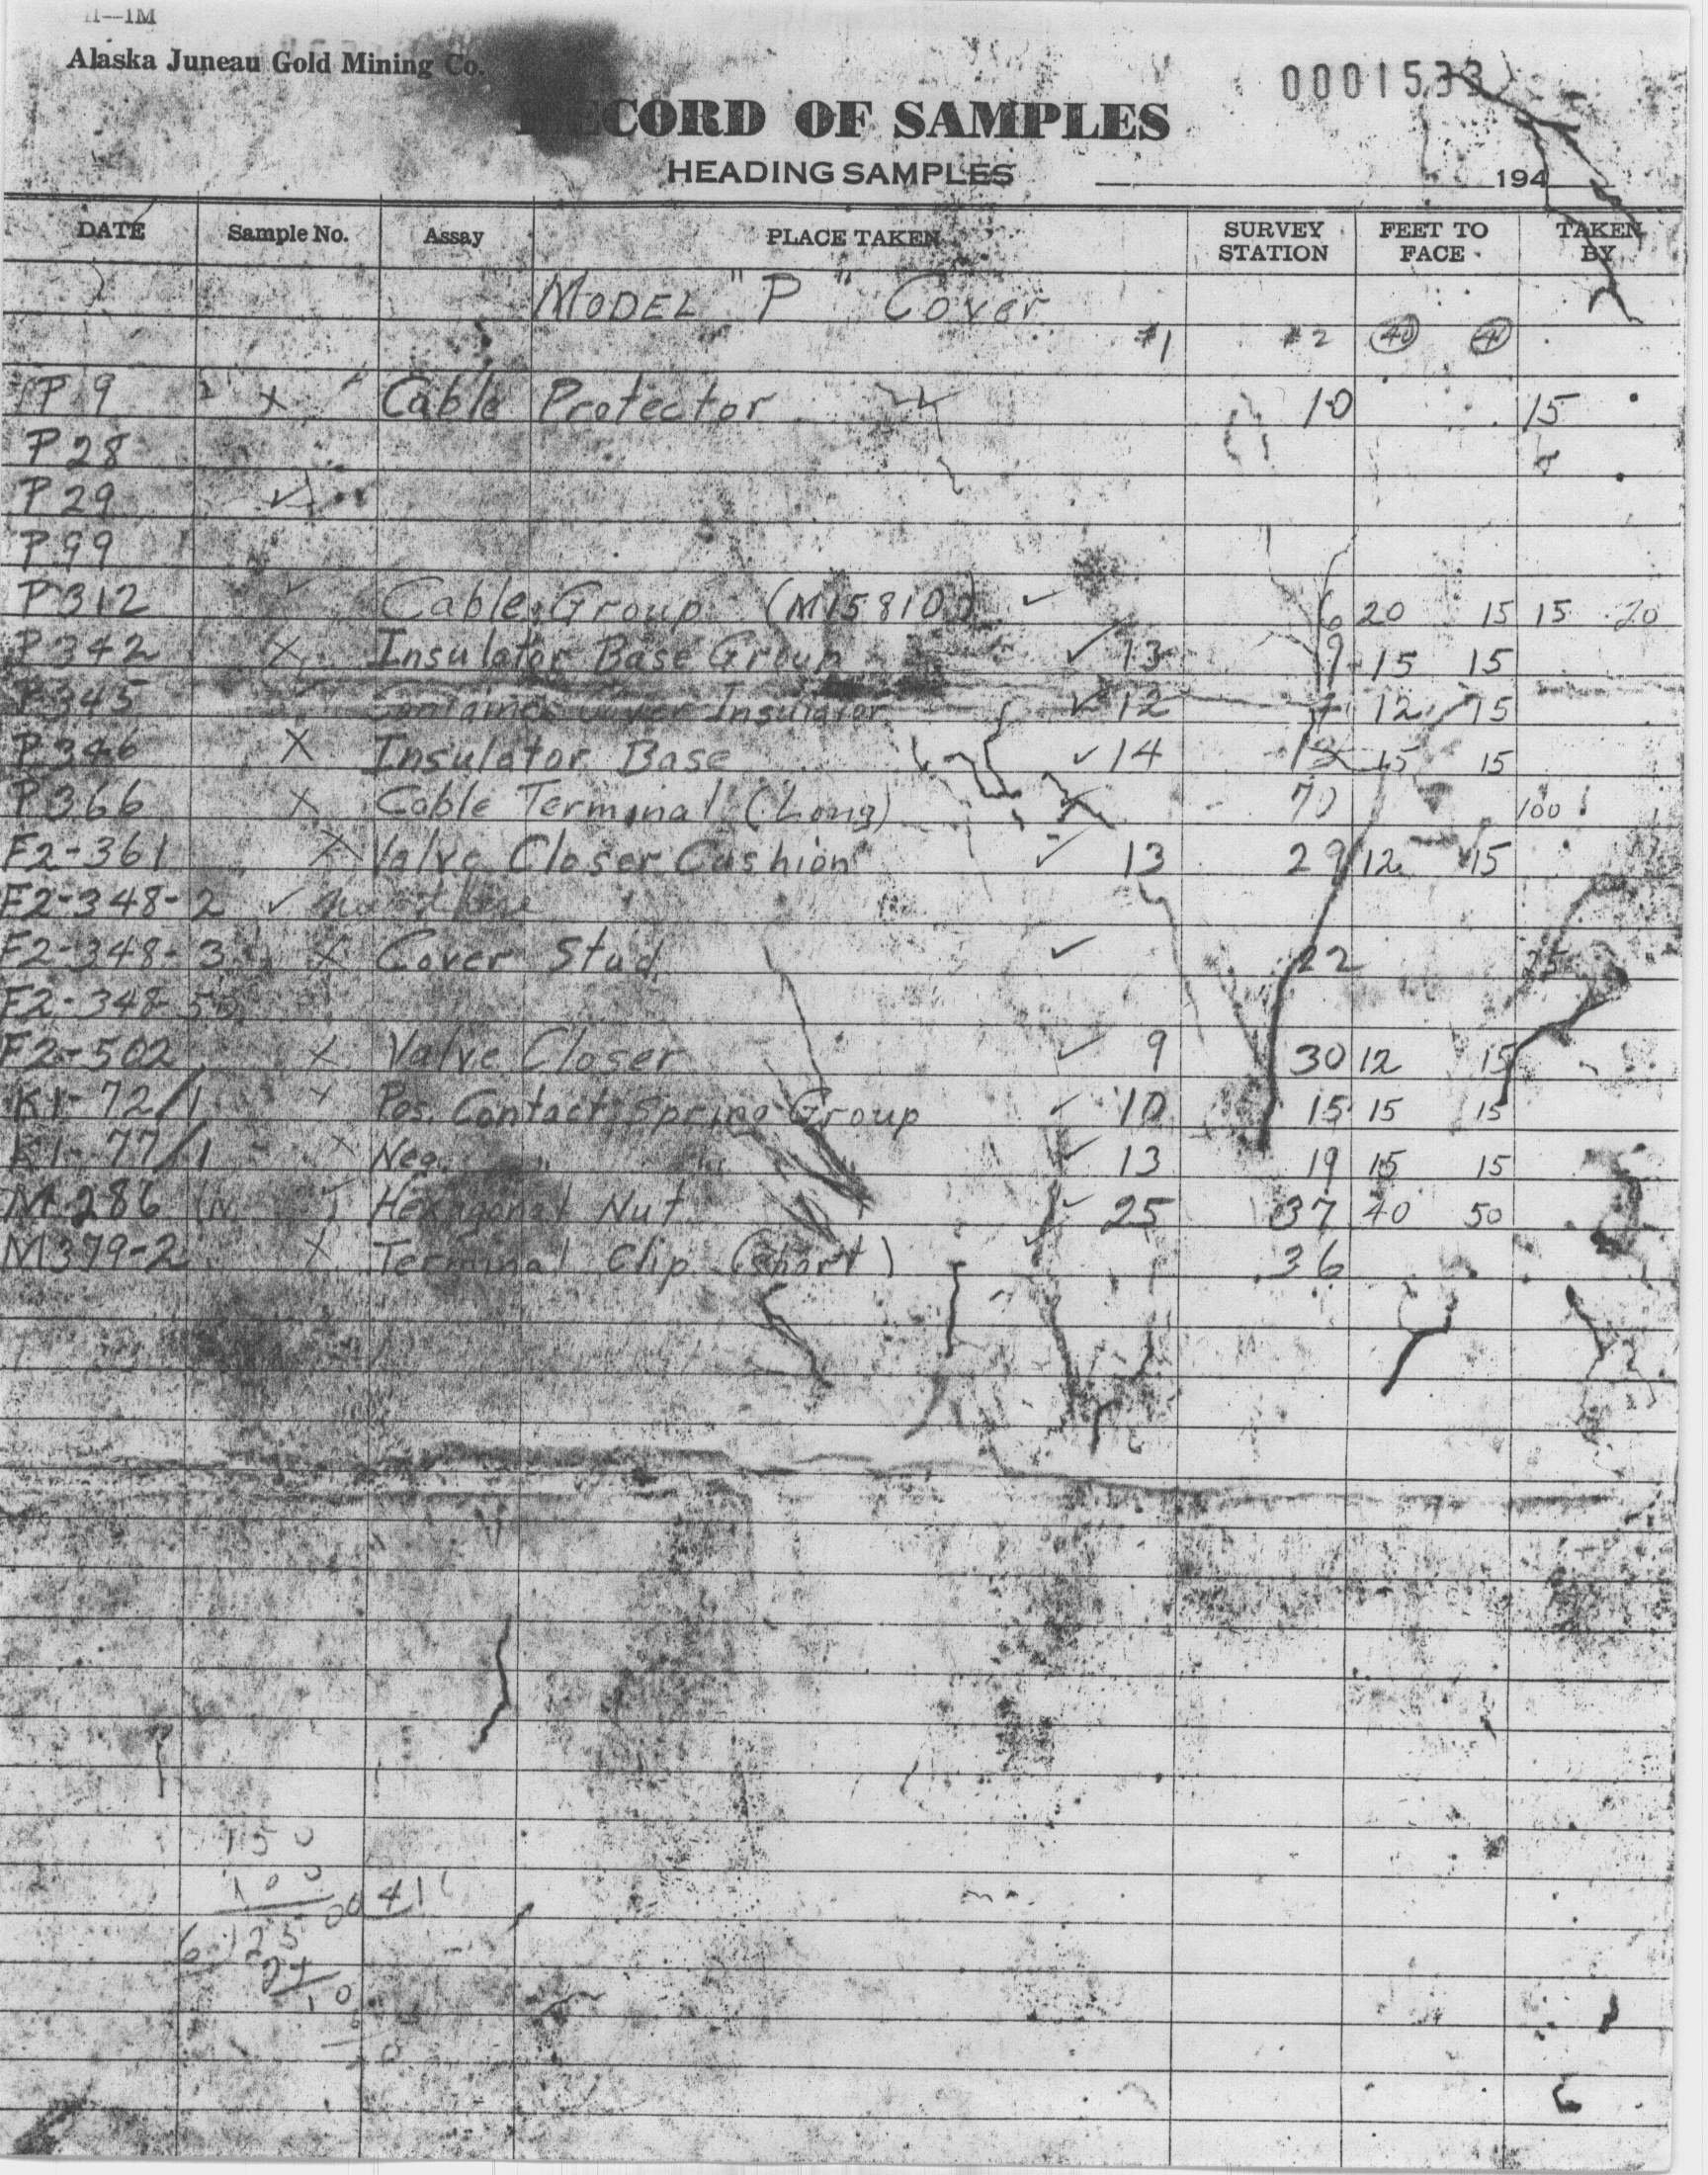 11—1M
Alaska Juneau Gold Mining Co.
0001533
RECORD OF SAMPLES
HEADING SAMPLES 194
DATE Sample No. Assay PLACE TAKEN SURVEY STATION FEET TO FACE TAKEN BY
MODEL "P" Cover
#1 #2 40 41
P9 X Cable Protector 10 15
P28
P29 ✓
P99
P312 ✓ Cable Group (M15810) ✓ 6 20 15 15 20
P342 X Insulator Base Group ✓ 13 9 15 15
P345 Container Cover Insulator ✓ 12 7 12 15
P346 X Insulator Base ✓ 14 15 15
P366 X Cable Terminal (Long) 70 100
F2-361 X Valve Closer Cushion ✓ 13 29 12 15
F2-348-2 ✓
F2-348-3 X Cover Stud ✓ 22
F2-348-
F2-502 X Valve Closer ✓ 9 30 12 15
K1-72/1 X Pos. Contact Spring Group ✓ 10 15 15 15
K1-77/1 X Neg. " " " ✓ 13 19 15 15
M286 Hexagonal Nut ✓ 25 37 40 50
M379-2 X Terminal Clip (Short) 36
150
100
00 41
6 ) 25
24
10